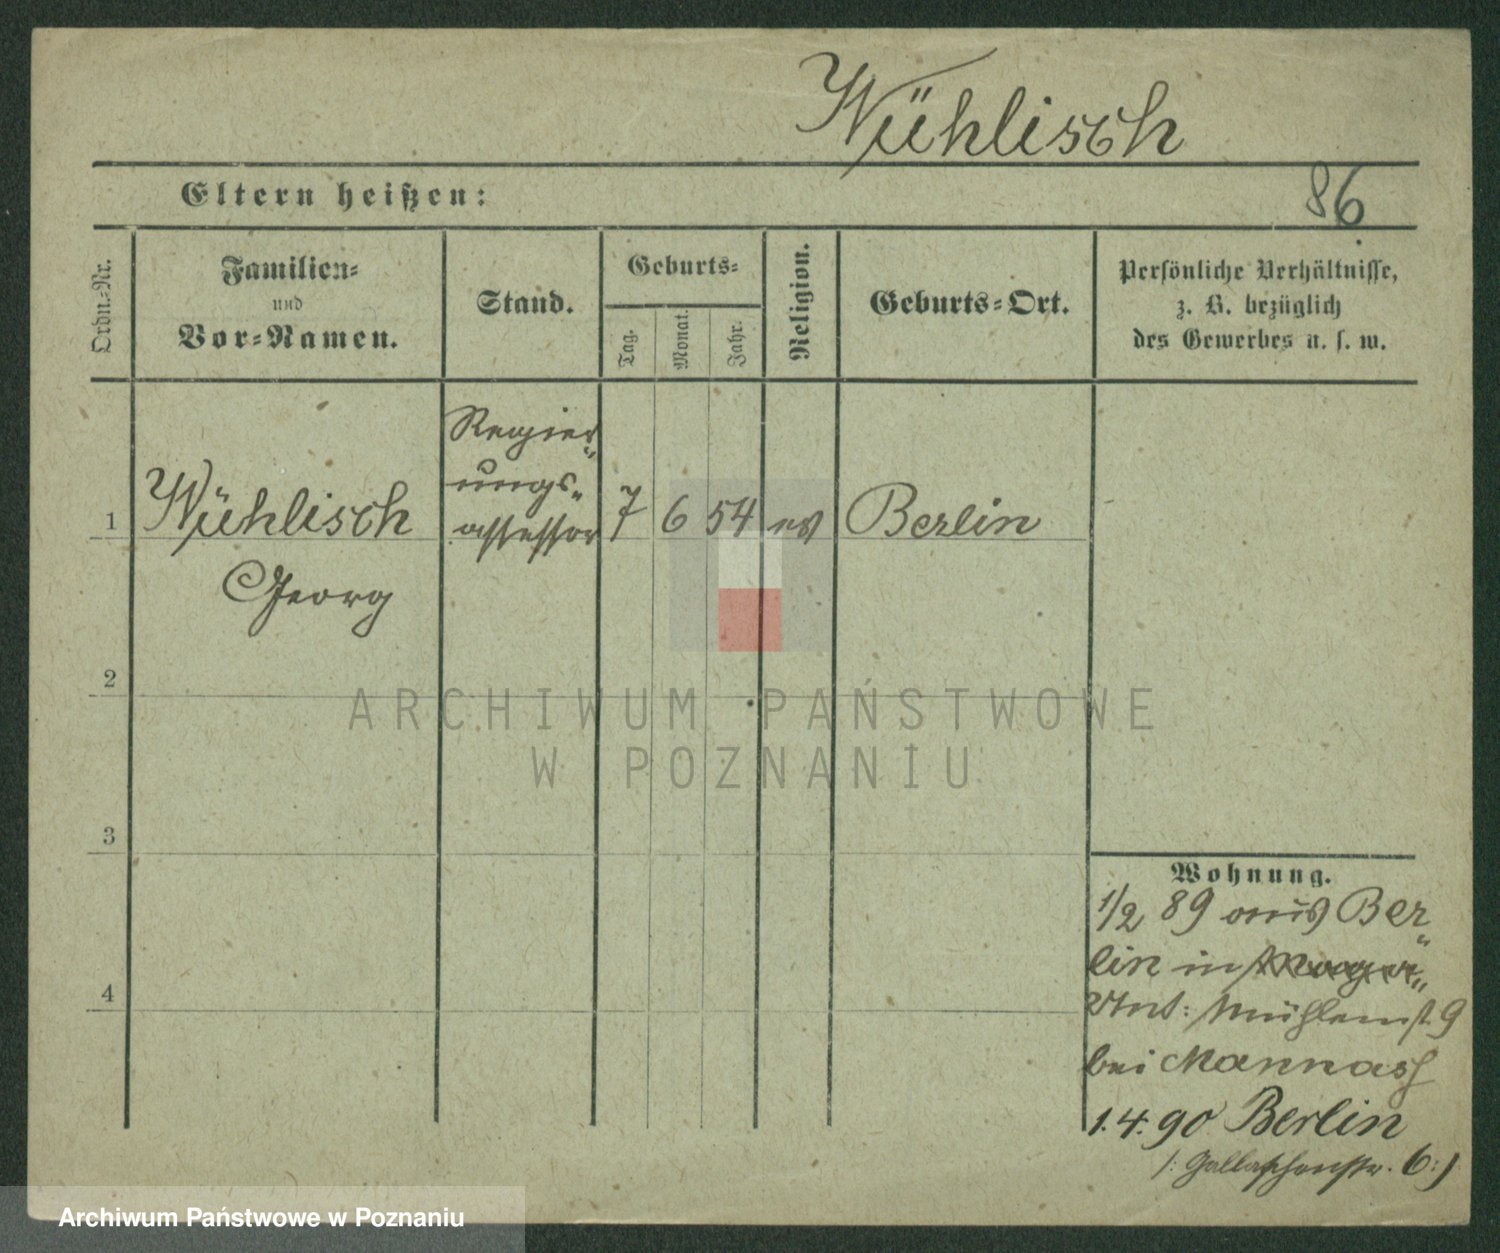 Wühlisch
Eltern heißen:
86
Ordn.-Nr.
Familien-
und
Vor-Namen.
Stand.
Geburts-
Tag.
Monat.
Jahr.
Religion.
Geburts-Ort.
Persönliche Verhältnisse,
z. B. bezüglich
des Gewerbes u. s. w.
Regier
ungs-
1 Wühlisch assessor 7 6 54 ev Berlin
Georg
2
ARCHIWUM PAŃSTWOWE
W POZNANIU
3
Wohnung.
1/2 89 aus Ber
lin in
4
Mühlenst. 9
bei Mannass
1.4.90 Berlin
6:)
Archiwum Państwowe w Poznaniu